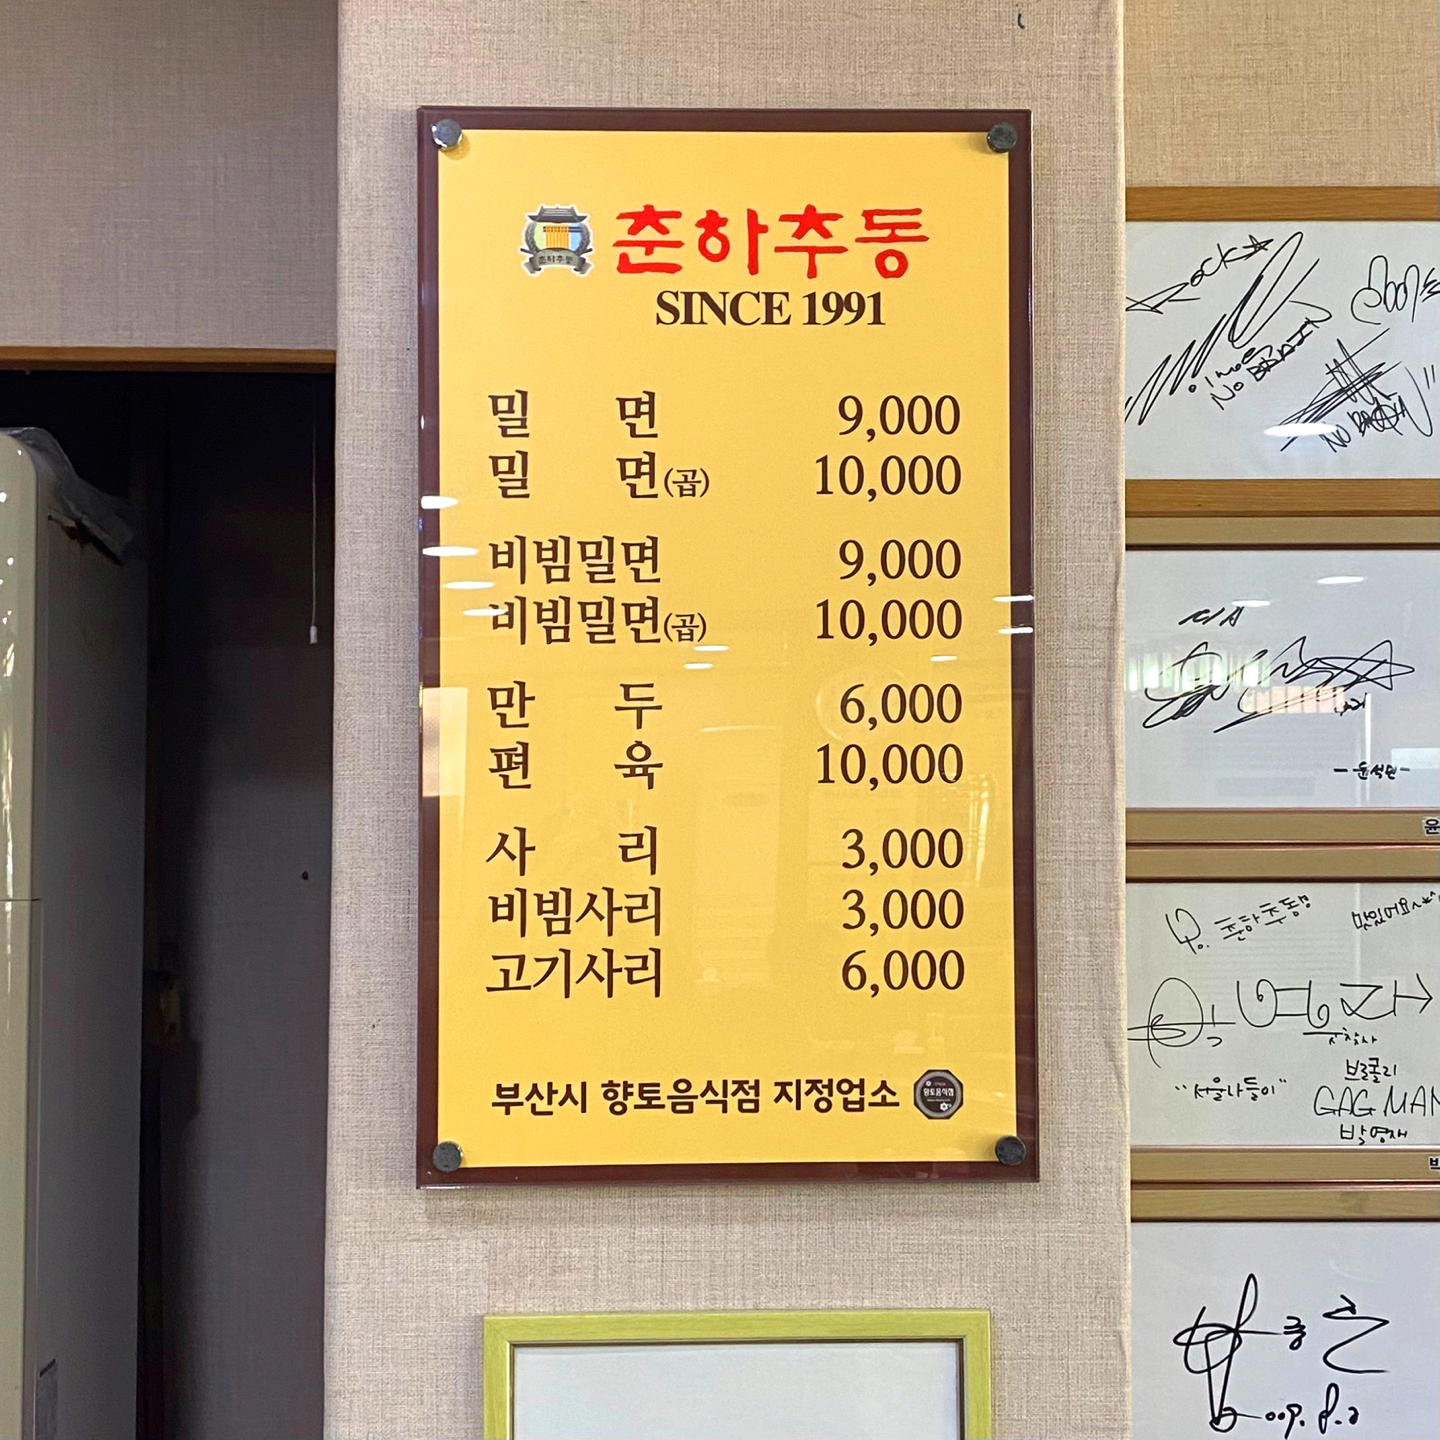 춘하추동
춘하추동
SINCE 1991
밀 면 9,000
밀 면(곱) 10,000
비빔밀면 9,000
비빔밀면(곱) 10,000
만 두 6,000
편 육 10,000
사 리 3,000
비빔사리 3,000
고기사리 6,000
부산시 향토음식점 지정업소
향토음식점
NO BRAIN
NO BRAIN
-윤석민-
윤
춘하추동!
맛있어요
"서울나들이"
브로콜리
GAG MAN
박영재